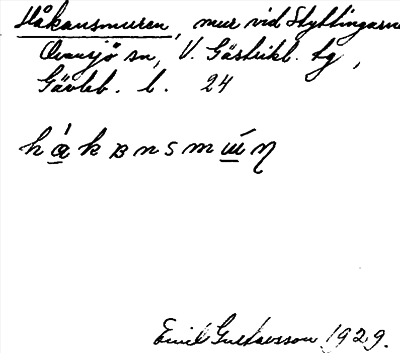 Håkansmuren, mur vid Styltingarna
Ovansjö sn, V. Gästrikl. tg,
Gävleb. l. 24
håkansmuɳ
Emil Gustavsson 1929.